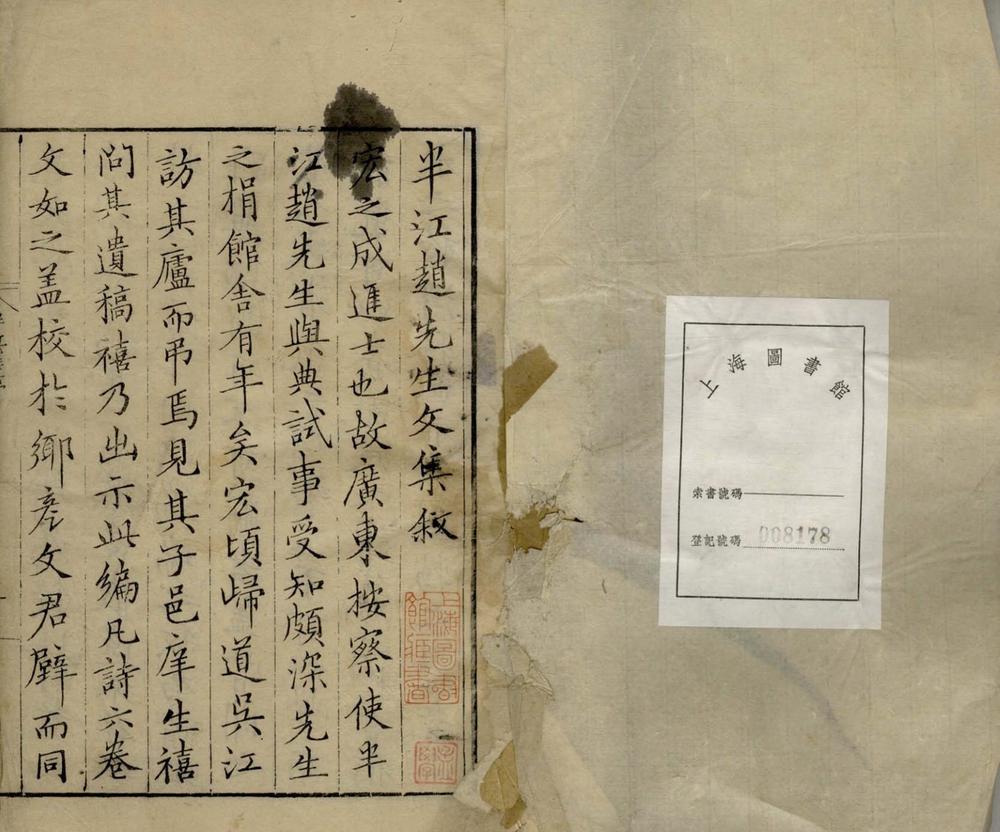 上海圖書館
索書號碼
登記號碼 008178
半江趙先生文集敘
宏之成進士也故廣東按察使半
江趙先生與典試事受知頗深先生
之捐館舍有年矣宏頃歸道吳江
訪其廬而弔焉見其子邑庠生禧
問其遺稿禧乃出示此編凡詩六卷
文如之盖校於鄉彥文君壁而同
上海圖書館藏書